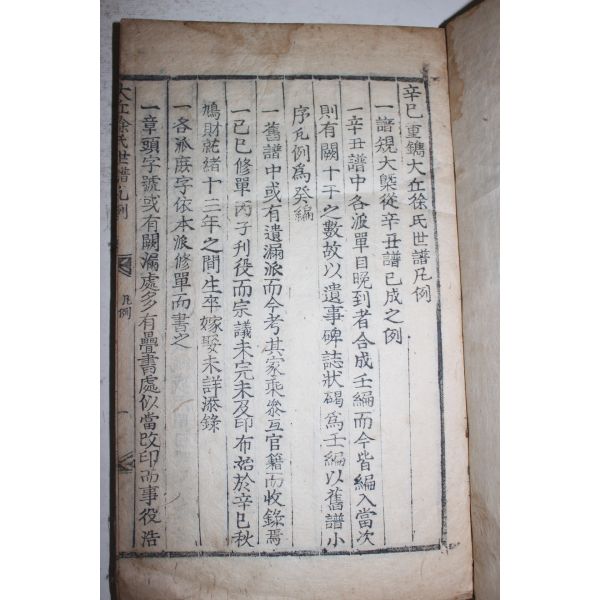 辛巳重鐫大丘徐氏世譜凡例
一譜規大槩從辛丑譜已成之例
一辛丑譜中各派單目晩到者合成壬編而今皆編入當次
則有闕十干之數故以遺事碑誌狀碣爲壬編以舊譜小
序凡例爲癸編
一舊譜中或有遺漏派而今考其家乘叅互官籍而收錄焉
一己巳修單丙子刋役而宗議未完未及印布始於辛巳秋
鳩財就緖十三年之間生卒嫁娶未詳添錄
一各派庶字依本派修單而書之
一章頭字號或有闕漏處多有疊書處似當改印而事役浩
大丘徐氏世譜凡例
凡例
一